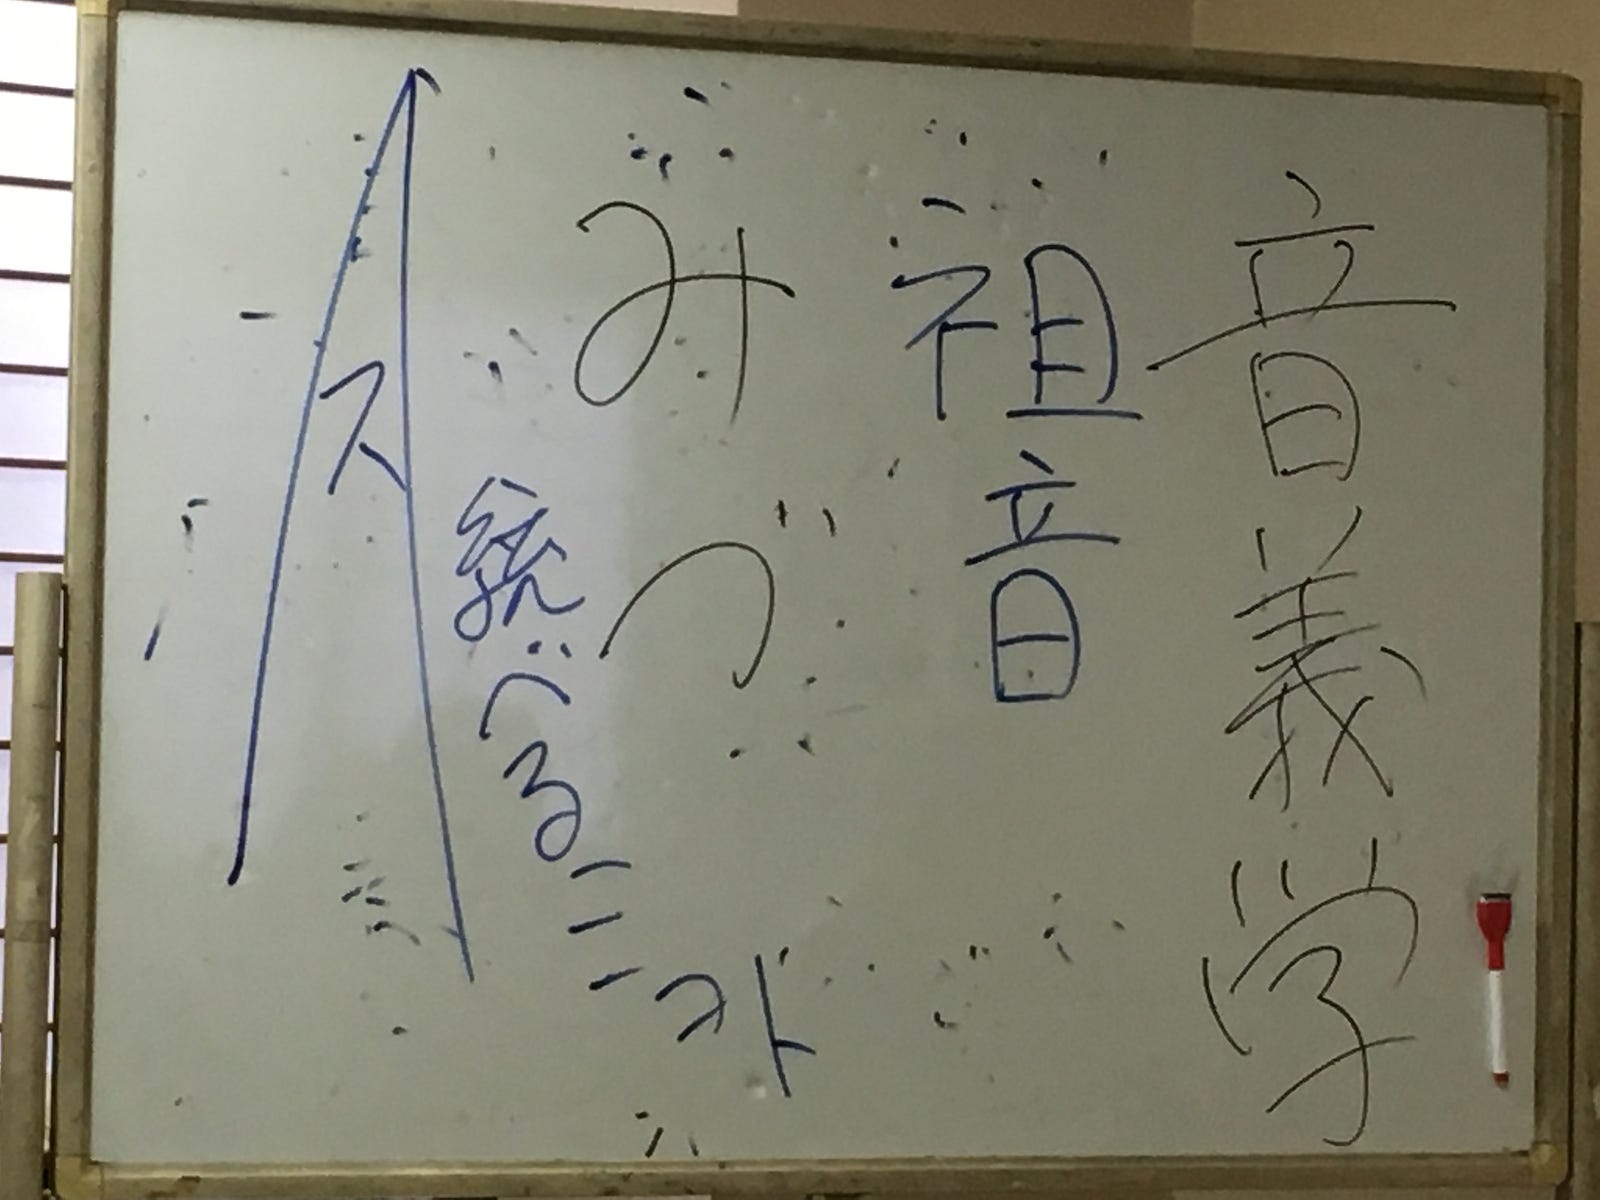 音義学
祖音
みづ
統べるミコト
ス